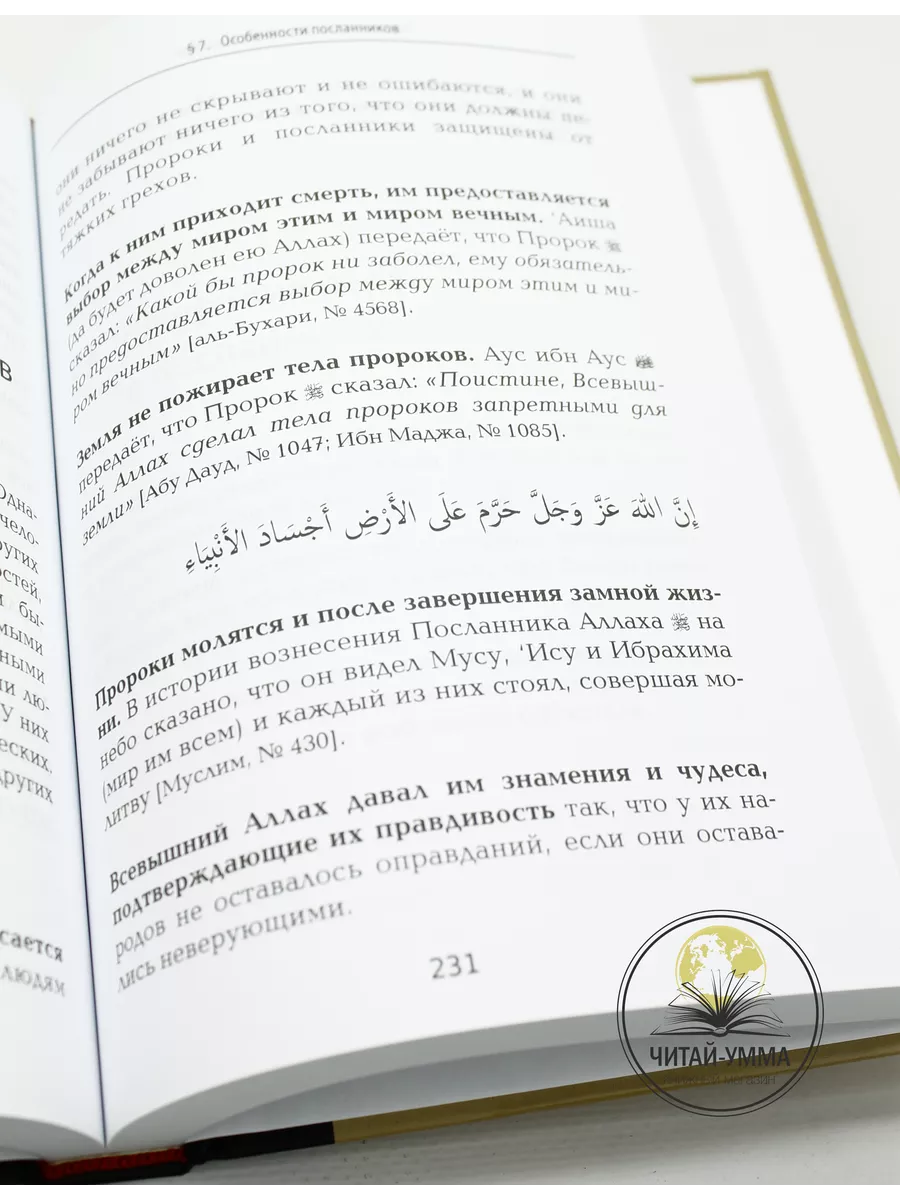 § 7. Особенности посланников
они ничего не скрывают и не ошибаются, и они
не забывают ничего из того, что они должны пе-
редать. Пророки и посланники защищены от
тяжких грехов.
Когда к ним приходит смерть, им предоставляется
выбор между миром этим и миром вечным. ‘Аиша
(да будет доволен ею Аллах) передаёт, что Пророк ﷺ
сказал: «Какой бы пророк ни заболел, ему обязатель-
но предоставляется выбор между миром этим и ми-
ром вечным» [аль-Бухари, № 4568].
Земля не пожирает тела пророков. Аус ибн Аус
передаёт, что Пророк ﷺ сказал: «Поистине, Всевыш-
ний Аллах сделал тела пророков запретными для
земли» [Абу Дауд, № 1047; Ибн Маджа, № 1085].
إِنَّ اللهَ عَزَّ وَجَلَّ حَرَّمَ عَلَى الأَرْضِ أَجْسَادَ الأَنْبِيَاءِ
Пророки молятся и после завершения замной жиз-
ни. В истории вознесения Посланника Аллаха ﷺ на
небо сказано, что он видел Мусу, ‘Ису и Ибрахима
(мир им всем) и каждый из них стоял, совершая мо-
литву [Муслим, № 430].
Всевышний Аллах давал им знамения и чудеса,
подтверждающие их правдивость так, что у их на-
родов не оставалось оправданий, если они остава-
лись неверующими.
231
В
Одна-
чело-
ругих
остей,
бы-
мыми
ными
лю-
У них
еских.
других
сается
людям
ЧИТАЙ-УММА
МАГАЗИН